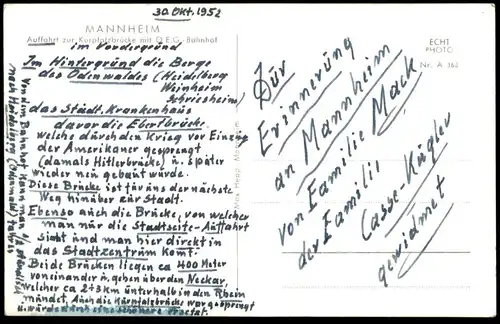 30. Okt. 1952
MANNHEIM
Auffahrt zur Kurpfalzbrücke mit O.E.G.-Bahnhof
im Vordergrund
Im Hintergrund die Berge
des Odenwaldes (Heidelberg
Weinheim
Schriesheim)
das Städt. Krankenhaus
davor die Ebertbrücke
welche durch den Krieg vor Einzug
der Amerikaner gesprengt
(damals Hitlerbrücke) u. später
wieder neu gebaut würde.
Diese Brücke ist für uns der nächste
Weg hinüber zür Stadt.
Ebenso auch die Brücke, von welcher
man nür die Stadtseite-Auffahrt
sieht ünd man hier direkt in
das Stadtzentrum komt.
Beide Brücken liegen ca 400 Meter
voneinander ü. gehen über den Neckar,
welcher ca 2÷3 km ünterhalb in den Rhein
mündet. Auch die Kürpfalzbrücke war gesprengt
ü. würde dürch eine schönere ersetzt.
Von dem Bahnhof kann man
nach Heidelberg
ECHT
PHOTO
Nr. A 362
Zür
Erinnerung
an Mannheim
von Familie Mack
der Famili
Casse-Kügler
gewidmet